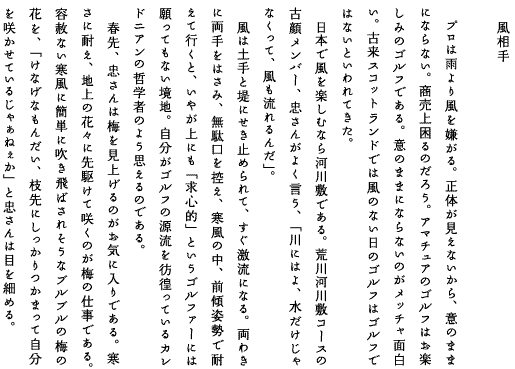 風相手
プロは雨より風を嫌がる。正体が見えないから、意のまま
にならない。商売上困るのだろう。アマチュアのゴルフはお楽
しみのゴルフである。意のままにならないのがメッチャ面白
い。古来スコットランドでは風のない日のゴルフはゴルフで
はないといわれてきた。
日本で風を楽しむなら河川敷である。荒川河川敷コースの
古顔メンバー、忠さんがよく言う、「川にはよ、水だけじゃ
なくって、風も流れるんだ」。
風は土手と堤にせき止められて、すぐ激流になる。両わき
に両手をはさみ、無駄口を控え、寒風の中、前傾姿勢で耐
えて行くと、いやが上にも『求心的』というゴルファーには
願ってもない境地。自分がゴルフの源流を彷徨っているカレ
ドニアンの哲学者のよう思えるのである。
春先、忠さんは梅を見上げるのがお気に入りである。寒
さに耐え、地上の花々に先駆けて咲くのが梅の仕事である。
容赦ない寒風に簡単に吹き飛ばされそうなブルブルの梅の
花を、「けなげなもんだい、枝先にしっかりつかまって自分
を咲かせているじゃぁねぇか」と忠さんは目を細める。